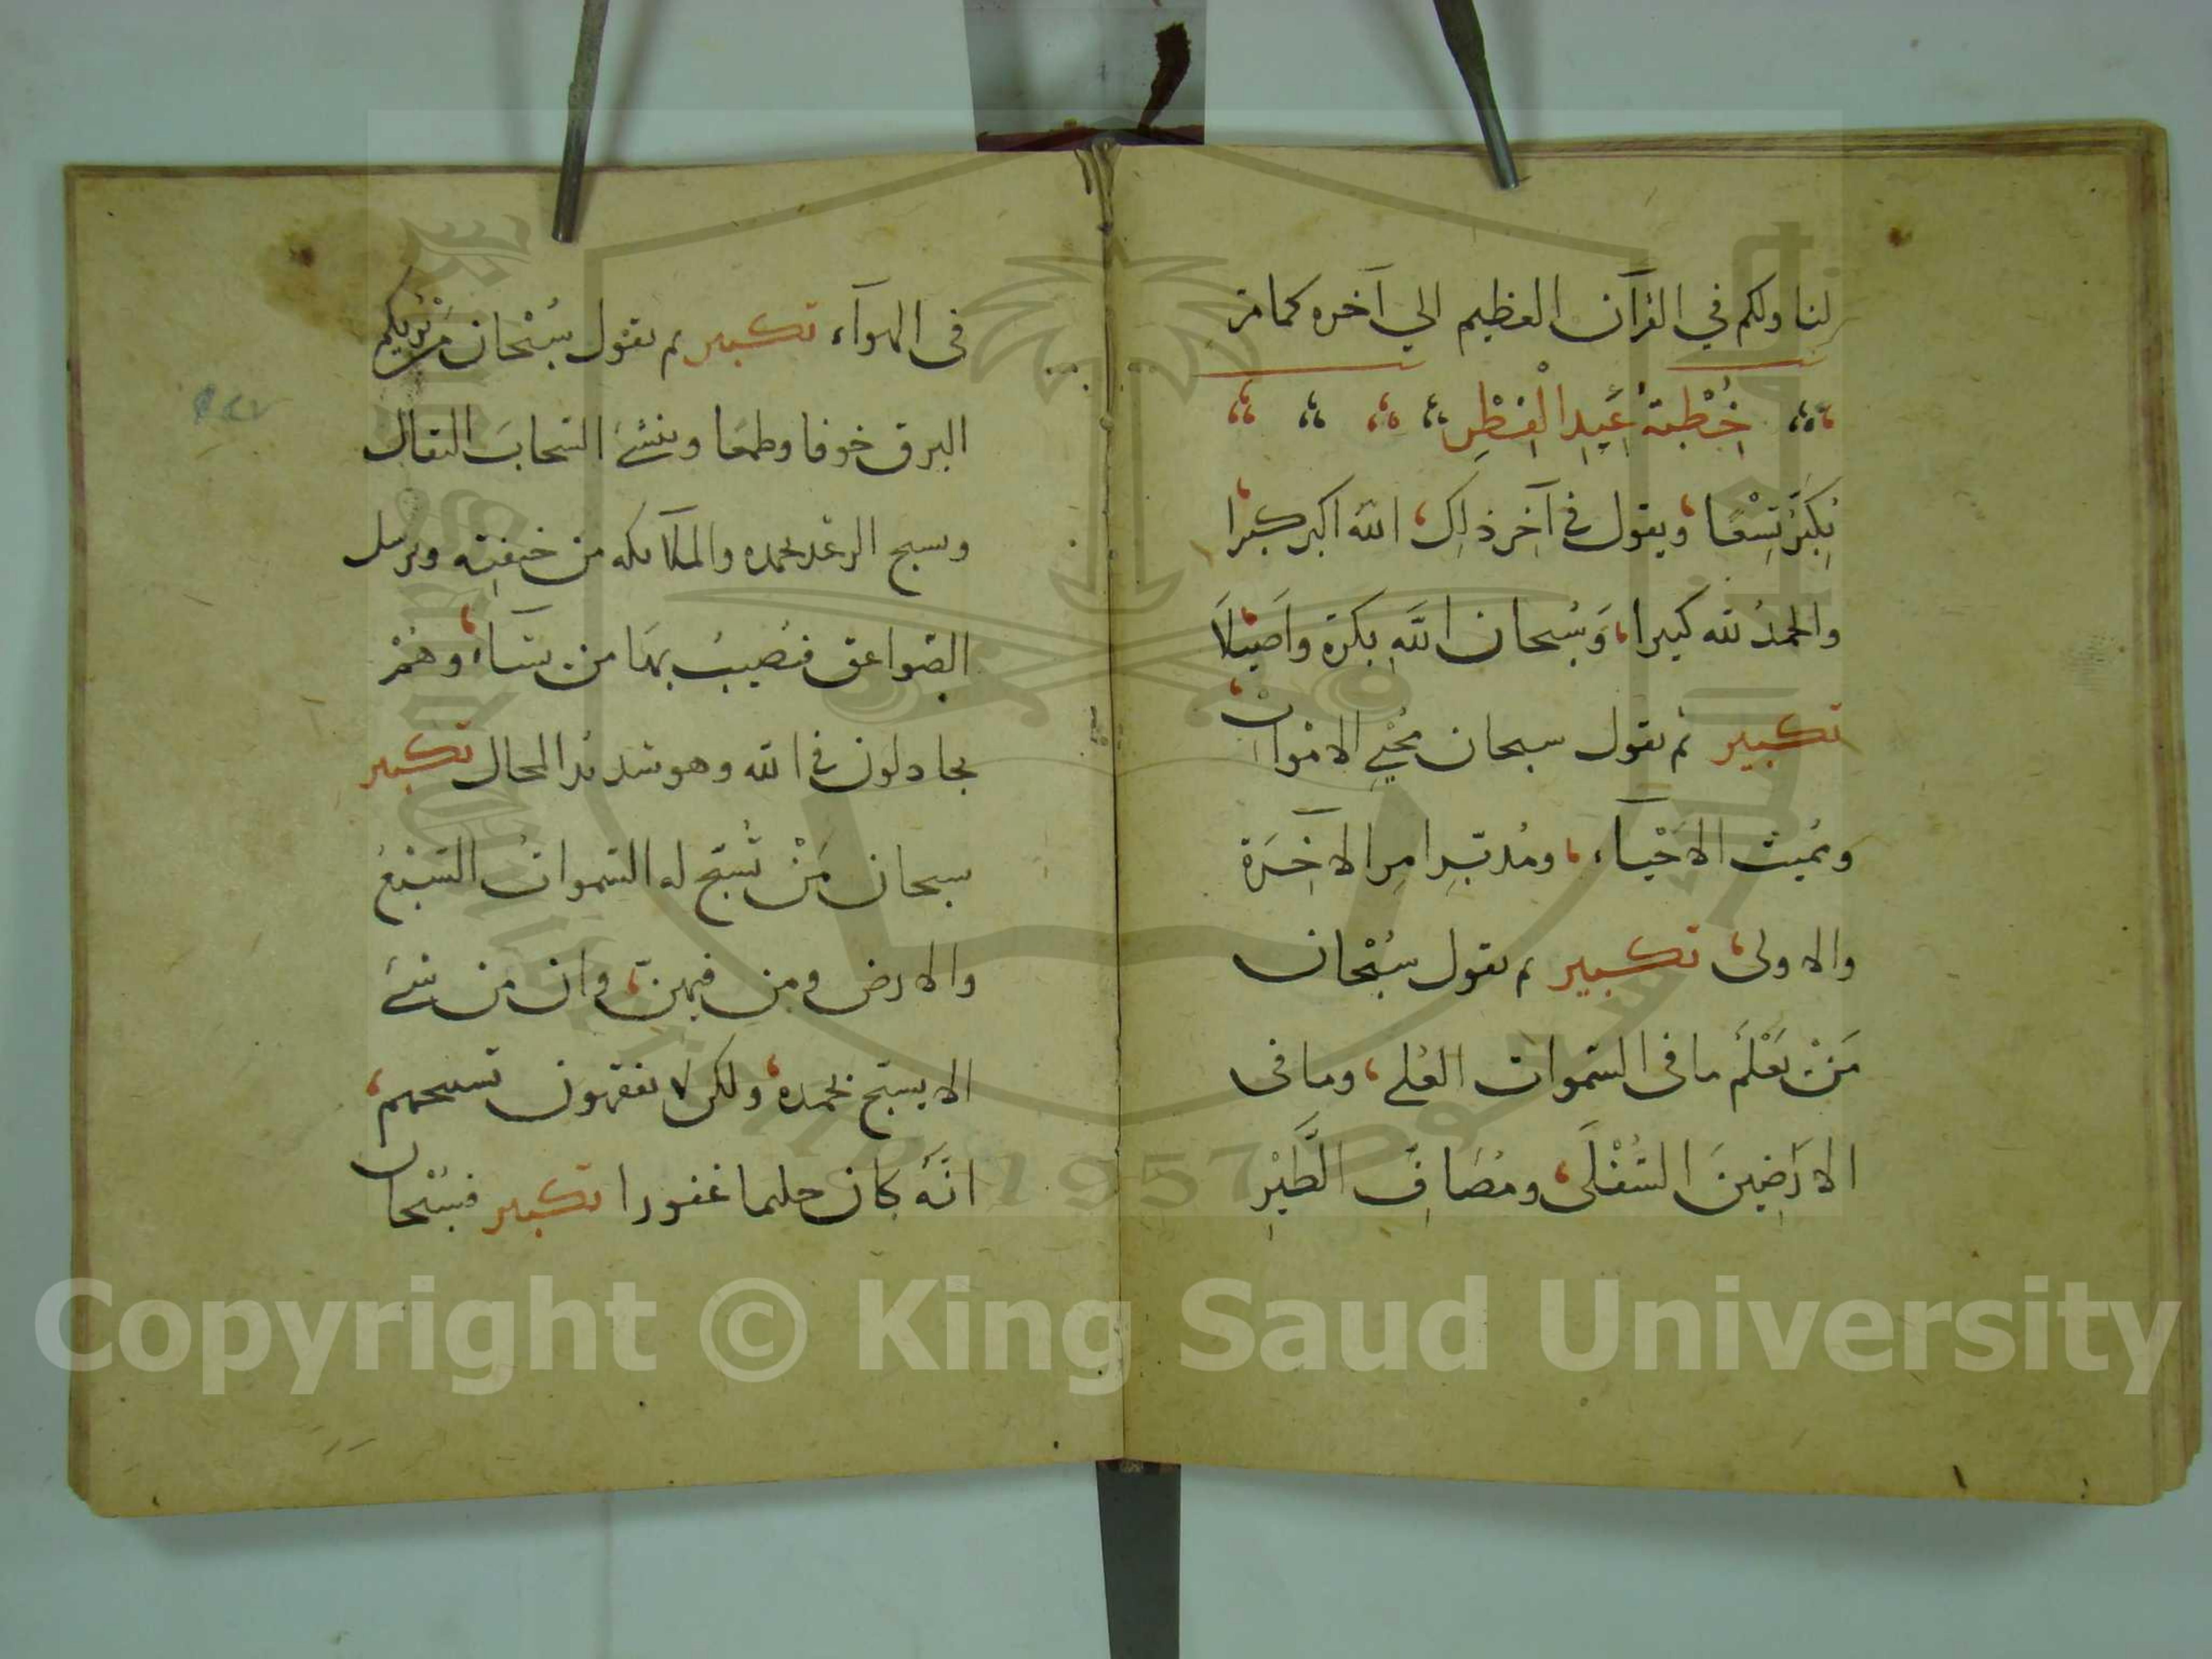 لنا ولكم في القرآن العظيم الي آخره كما مرّ
خُطْبَةُ عِيدِ الْفِطْرِ
يُكَبِّرُ تِسْعًا، ويقول في آخِر ذلِك، الله اكبر كبيرا
والحمدُ لله كثيرا، وَسُبحان اللَّهِ بكرة واَصِيلًا
تكبير ثم يقول سبحان مُحْيِي الامْوات،
ومُميت الاَحْيآء، ومُدبّرِ امرِ الاخِرَة
والاولى، تكبير ثم يقول سُبْحان
مَنْ يَعْلَمُ ما في السّموات العُلي، وما في
الارَضِينَ السُّفْلَى، ومُصَافِّ الطَّيْرِ
في الهوآء تكبير ثم يقول سُبْحان مَنْ يُرِيكم
البرق خوفا وطمعَا وينشئ السّحابَ الثقال
ويسبح الرعْد بحمده والملآئكه من خيفتِه ويرسل
الصّواعق فيُصيبُ بهَا من يشآء، وهُمْ
يجادلون في الله وهو شديد المحال تكبير
سبحان مَنْ تُسَبّح له السّمواتُ السّبْعُ
والارض ومن فيهنّ، وان من شئ
الا يسبّح بحمده، ولكن لا تفقهون تسبيحهم،
انَّهُ كان حليما غفورا تكبير فسُبْحان
Copyright © King Saud University
1957